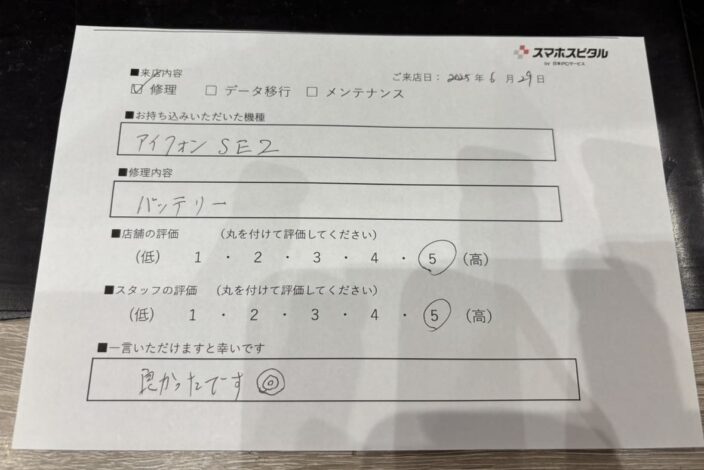 スマホスピタル
by 日本PCサービス
■来店内容
ご来店日： 2025 年 6 月 29 日
☑ 修理 □ データ移行 □ メンテナンス
■お持ち込みいただいた機種
アイフォン SE2
■修理内容
バッテリー
■店舗の評価 （丸を付けて評価してください）
（低） 1 ・ 2 ・ 3 ・ 4 ・ 5 （高）
■スタッフの評価 （丸を付けて評価してください）
（低） 1 ・ 2 ・ 3 ・ 4 ・ 5 （高）
■一言いただけますと幸いです
良かったです ◎